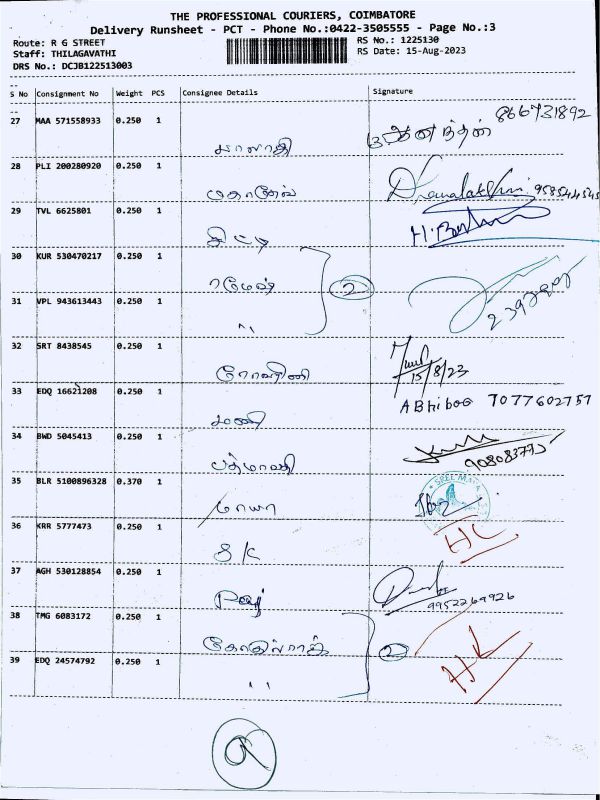 THE PROFESSIONAL COURIERS, COIMBATORE
Delivery Runsheet - PCT - Phone No.:0422-3505555 - Page No.:3
Route: R G STREET
RS No.: 1225130
Staff: THILAGAVATHI
RS Date: 15-Aug-2023
DRS No.: DCJB122513003
S No Consignment No Weight PCS Consignee Details Signature
27 MAA 571558933 0.250 1 866731892
28 PLI 200280920 0.250 1
29 TVL 6625801 0.250 1
30 KUR 530470217 0.250 1 ரமேஷ் 2
31 VPL 943613443 0.250 1 "
32 SRT 8438545 0.250 1 15/8/23
33 EDQ 16621208 0.250 1 மணி ABhiboo 7077602757
34 BWD 5045413 0.250 1
35 BLR 5100896328 0.370 1 மாயா
36 KRR 5777473 0.250 1 S K HC
37 AGH 530128854 0.250 1 9952269926
38 TMG 6083172 0.250 1 2
39 EDQ 24574792 0.250 1 "